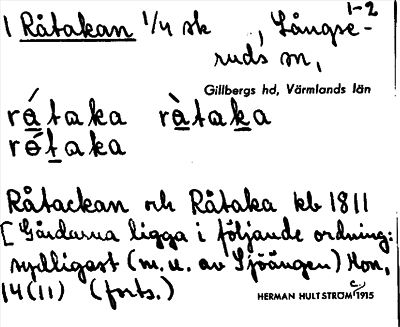 1-2
1 Råtakan 1/4 sk , Långse-
ruds sn,
Gillbergs hd, Värmlands län
rátaka ràtaka
rótaka
Råtackan och Råtaka kb 1811
[Gårdarna ligga i följande ordning:
sydligast (m.u. av Sjöängen) Mon,
14(11) (forts.)
HERMAN HULTSTRÖM 1915